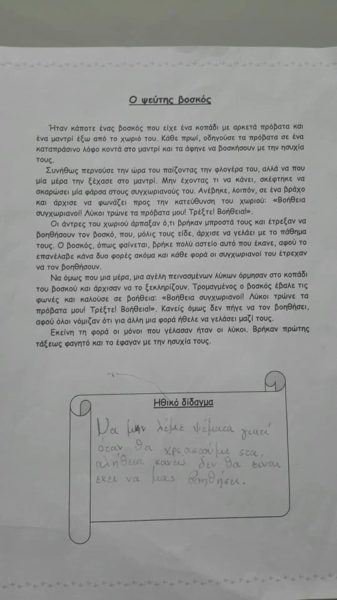 Ο ψεύτης βοσκός
Ήταν κάποτε ένας βοσκός που είχε ένα κοπάδι με αρκετά πρόβατα και
ένα μαντρί έξω από το χωριό του. Κάθε πρωί, οδηγούσε τα πρόβατα σε ένα
καταπράσινο λόφο κοντά στο μαντρί και τα άφηνε να βοσκήσουν με την ησυχία
τους.
Συνήθως περνούσε την ώρα του παίζοντας την φλογέρα του, αλλά να που
μία μέρα την ξέχασε στο μαντρί. Μην έχοντας τι να κάνει, σκέφτηκε να
σκαρώσει μία φάρσα στους συγχωριανούς του. Ανέβηκε, λοιπόν, σε ένα βράχο
και άρχισε να φωνάζει προς την κατεύθυνση του χωριού: «Βοήθεια
συγχωριανοί! Λύκοι τρώνε τα πρόβατα μου! Τρέξτε! Βοήθεια!».
Οι άντρες του χωριού άρπαξαν ό,τι βρήκαν μπροστά τους και έτρεξαν να
βοηθήσουν τον βοσκό, που, μόλις τους είδε, άρχισε να γελάει με το πάθημα
τους. Ο βοσκός, όπως φαίνεται, βρήκε πολύ αστείο αυτό που έκανε, αφού το
επανέλαβε κάνα δυο φορές ακόμα και κάθε φορά οι συγχωριανοί του έτρεχαν
να τον βοηθήσουν.
Να όμως που μια μέρα, μια αγέλη πεινασμένων λύκων όρμησαν στο κοπάδι
του βοσκού και άρχισαν να το ξεκληρίζουν. Τρομαγμένος ο βοσκός έβαλε τις
φωνές και καλούσε σε βοήθεια: «Βοήθεια συγχωριανοί! Λύκοι τρώνε τα
πρόβατα μου! Τρέξτε! Βοήθεια!». Κανείς όμως δεν πήγε να τον βοηθήσει,
αφού όλοι νόμιζαν ότι για άλλη μια φορά ήθελε να γελάσει μαζί τους.
Εκείνη τη φορά οι μόνοι που γέλασαν ήταν οι λύκοι. Βρήκαν πρώτης
τάξεως φαγητό και το έφαγαν με την ησυχία τους.
Ηθικό δίδαγμα
Να μην λέμε ψέματα γιατί
όταν θα χρειαστούμε στα
αλήθεια κανείς δεν θα είναι
εκεί να μας βοηθήσει.